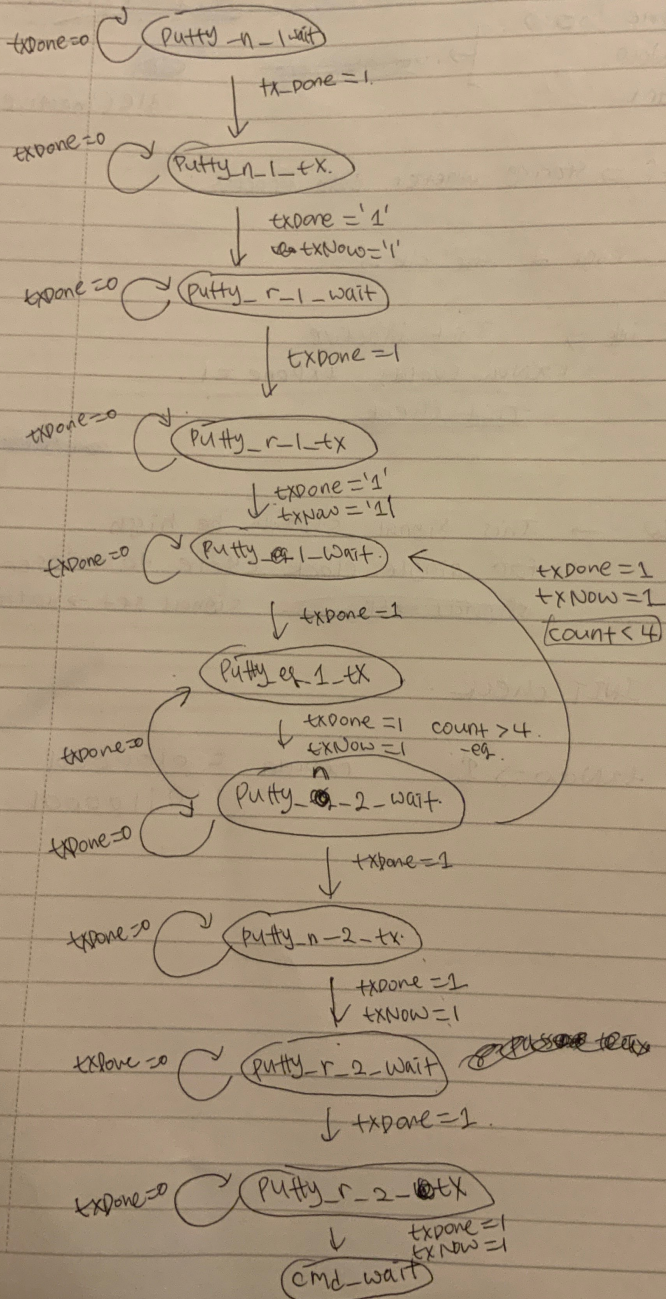 txDone=0
putty_n_1_wait
tx_Done = 1
txDone=0
putty_n_1_tx.
txDone ='1'
txNow='1'
txDone =0
putty_r_1_wait
txDone =1
txDone=0
putty_r_1_tx
txDone='1'
txNow ='1'
txDone=0
putty_eq_1_wait.
txDone = 1
txNow = 1
count<4
txDone=1
putty_eq_1_tx
txDone =1
txNow =1
count >4.
-eq.
txDone=0
putty_n_2_wait.
txDone=0
txDone=1
txDone=0
putty_n-2-tx.
txDone =1
txNow=1
txDone =0
putty_r_2_wait
txDone =1.
txDone=0
putty_r_2_tx
txDone =1
txNow =1
cmd_wait